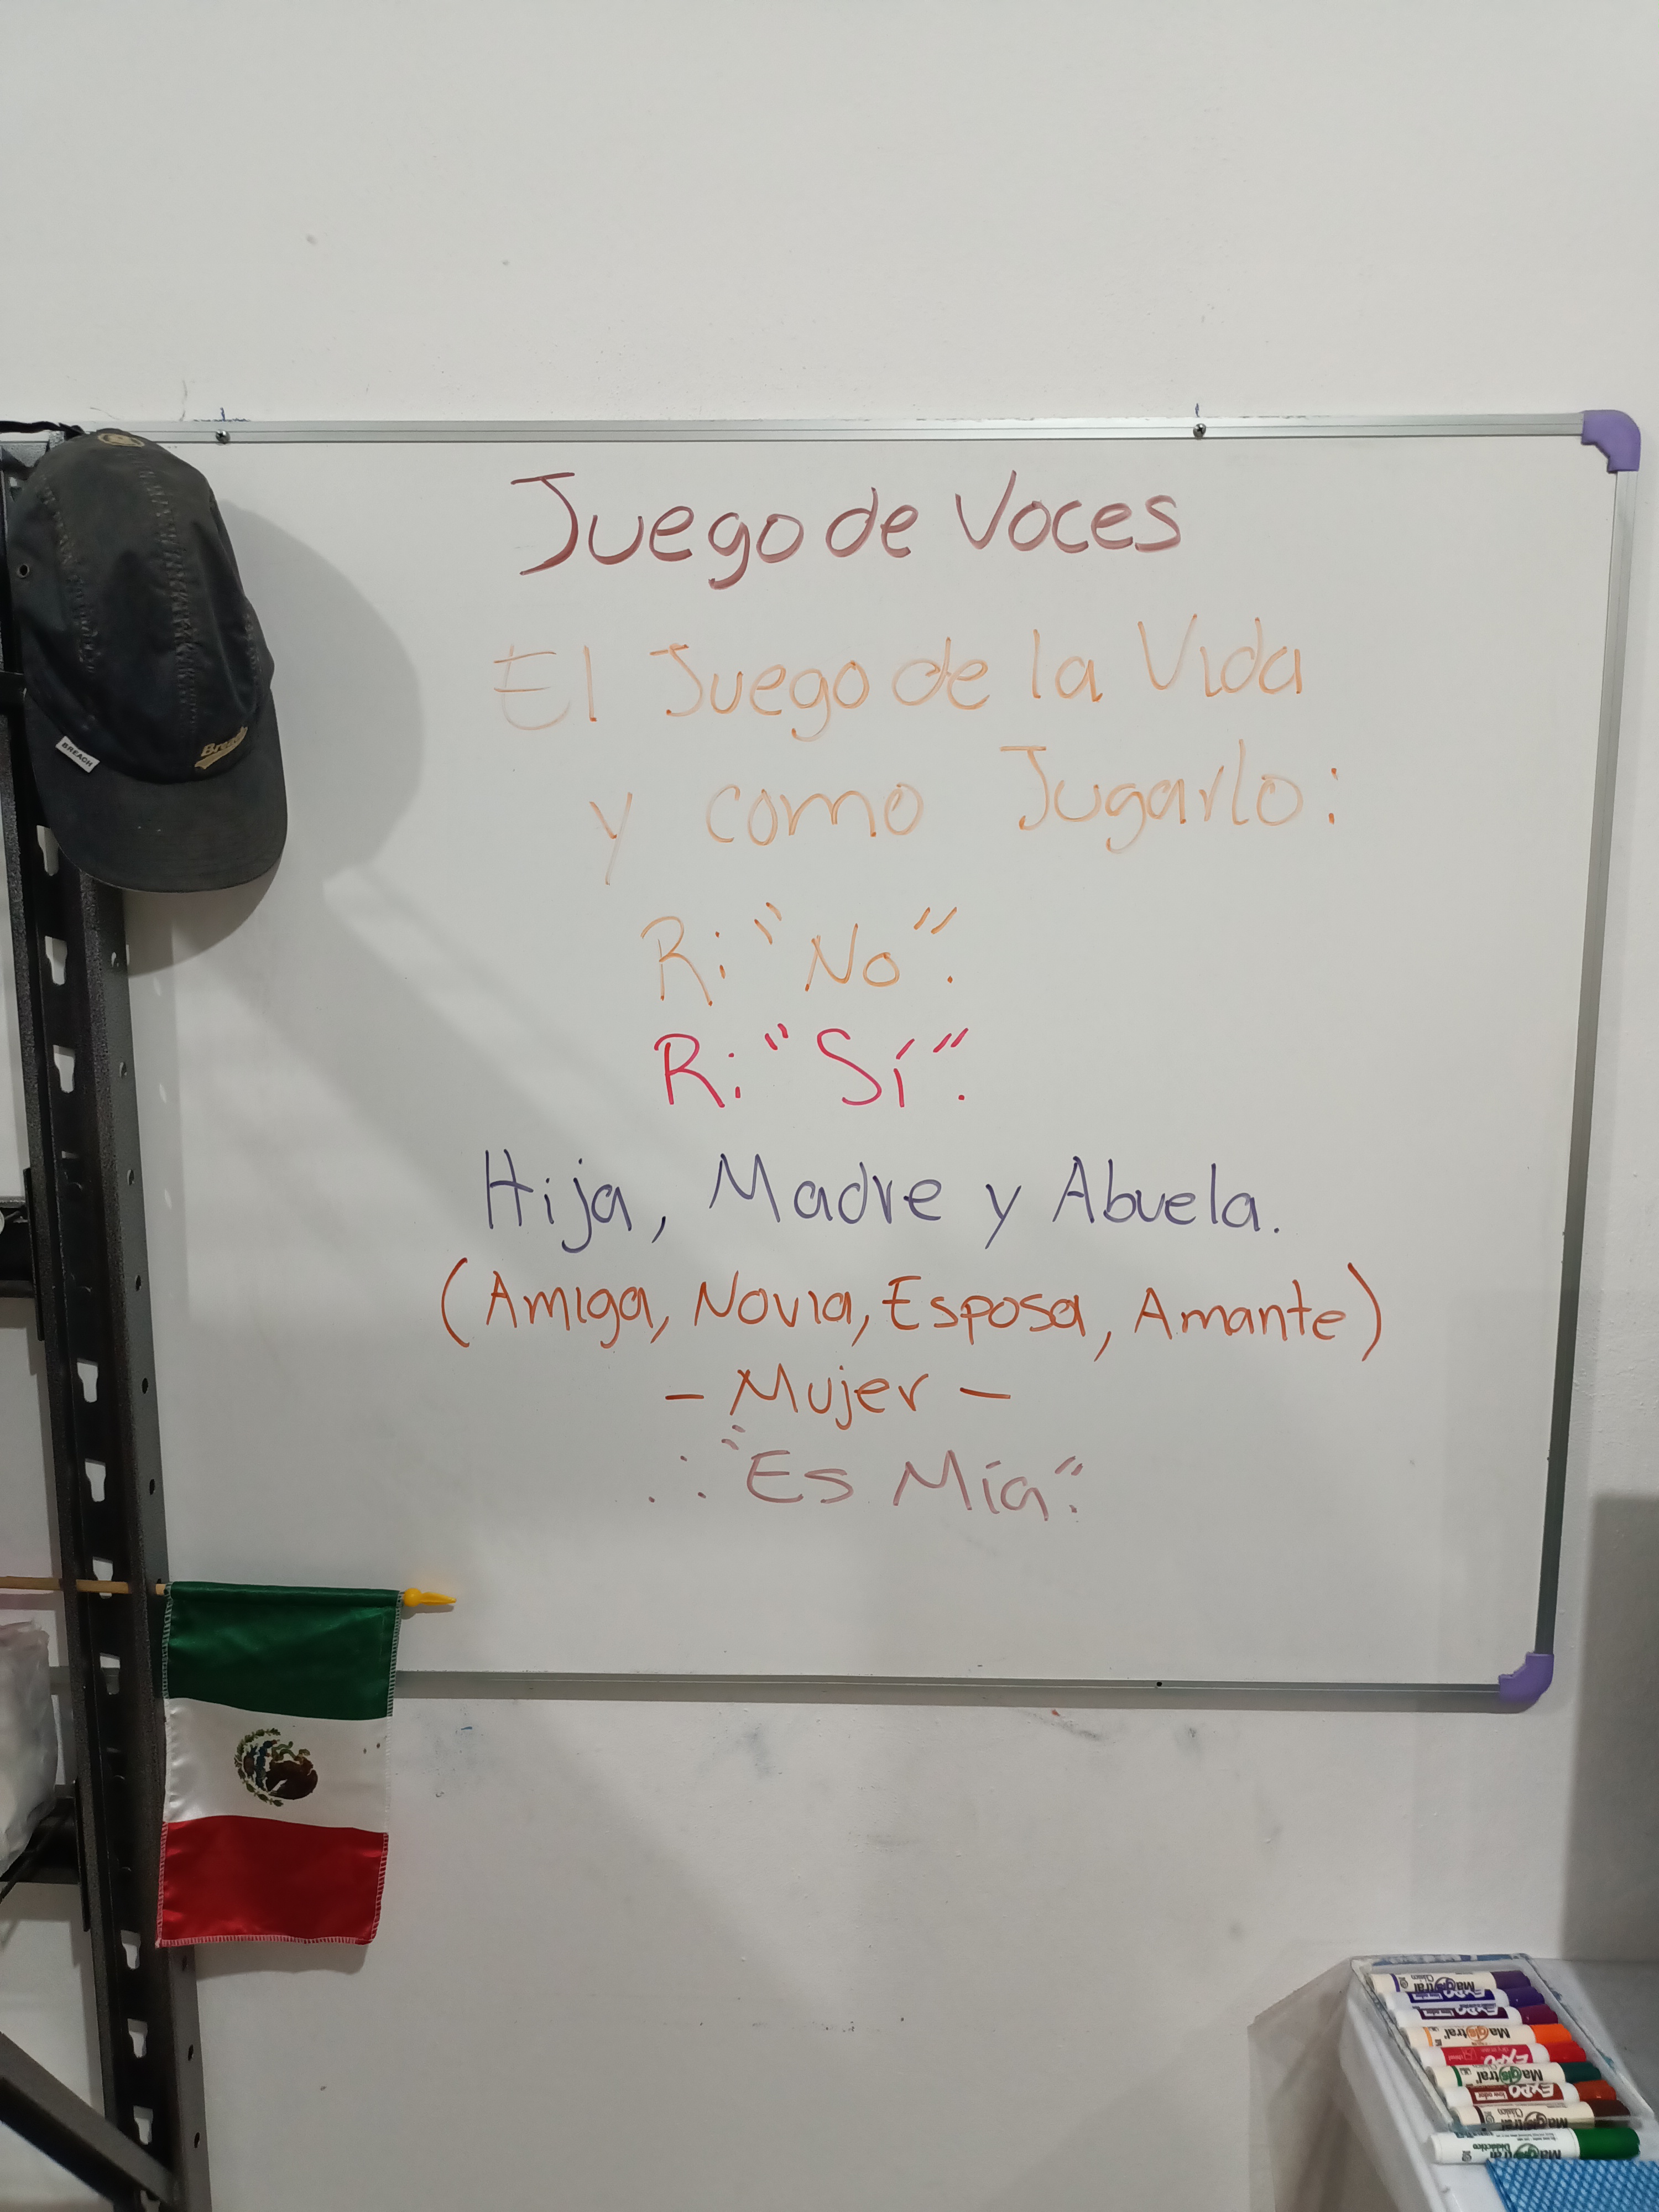 Juego de Voces
El Juego de la Vida
y como Jugarlo:
R: "No".
R: "Sí".
Hija, Madre y Abuela.
(Amiga, Novia, Esposa, Amante)
- Mujer -
∴ "Es Mía".
Breach
BREACH
Magistral
EXPO
EXPO
Magistral
EXPO
Magistral
EXPO
Magistral
Magistral
Didáctico